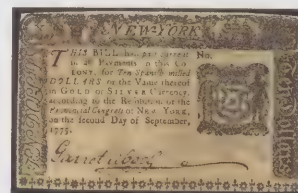 NEW-YORK
THIS BILL shall pass current No.
in all Payments in this CO-
LONY, for Ten Spanish milled
DOLLARS or the Value thereof
in GOLD or SILVER Currency,
according to the Resolution of the
Provincial Congress of NEW-YORK,
on the second Day of September,
1775.